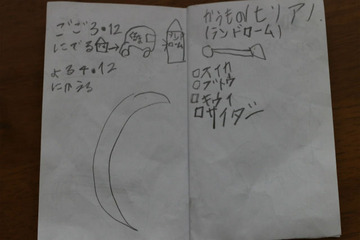 ごご3.12
にでる
よる4.12
にかえる
かうもの
(ランドローム)
スイカ
ブドウ
キウイ
サイダー